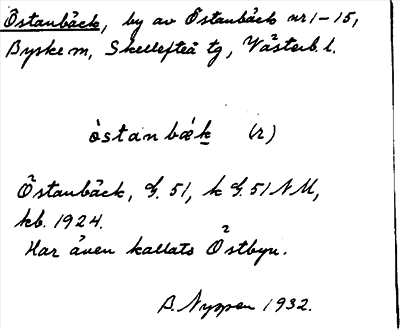 Östanbäck, by av Östanbäck nr 1-15,
Byske sn, Skellefteå tg, Västerb. l.
östanbäk (r)
Östanbäck, G. 51, k G. 51 NM,
kb. 1924.
Har även kallats Östbyn.
B. Nyppen 1932.